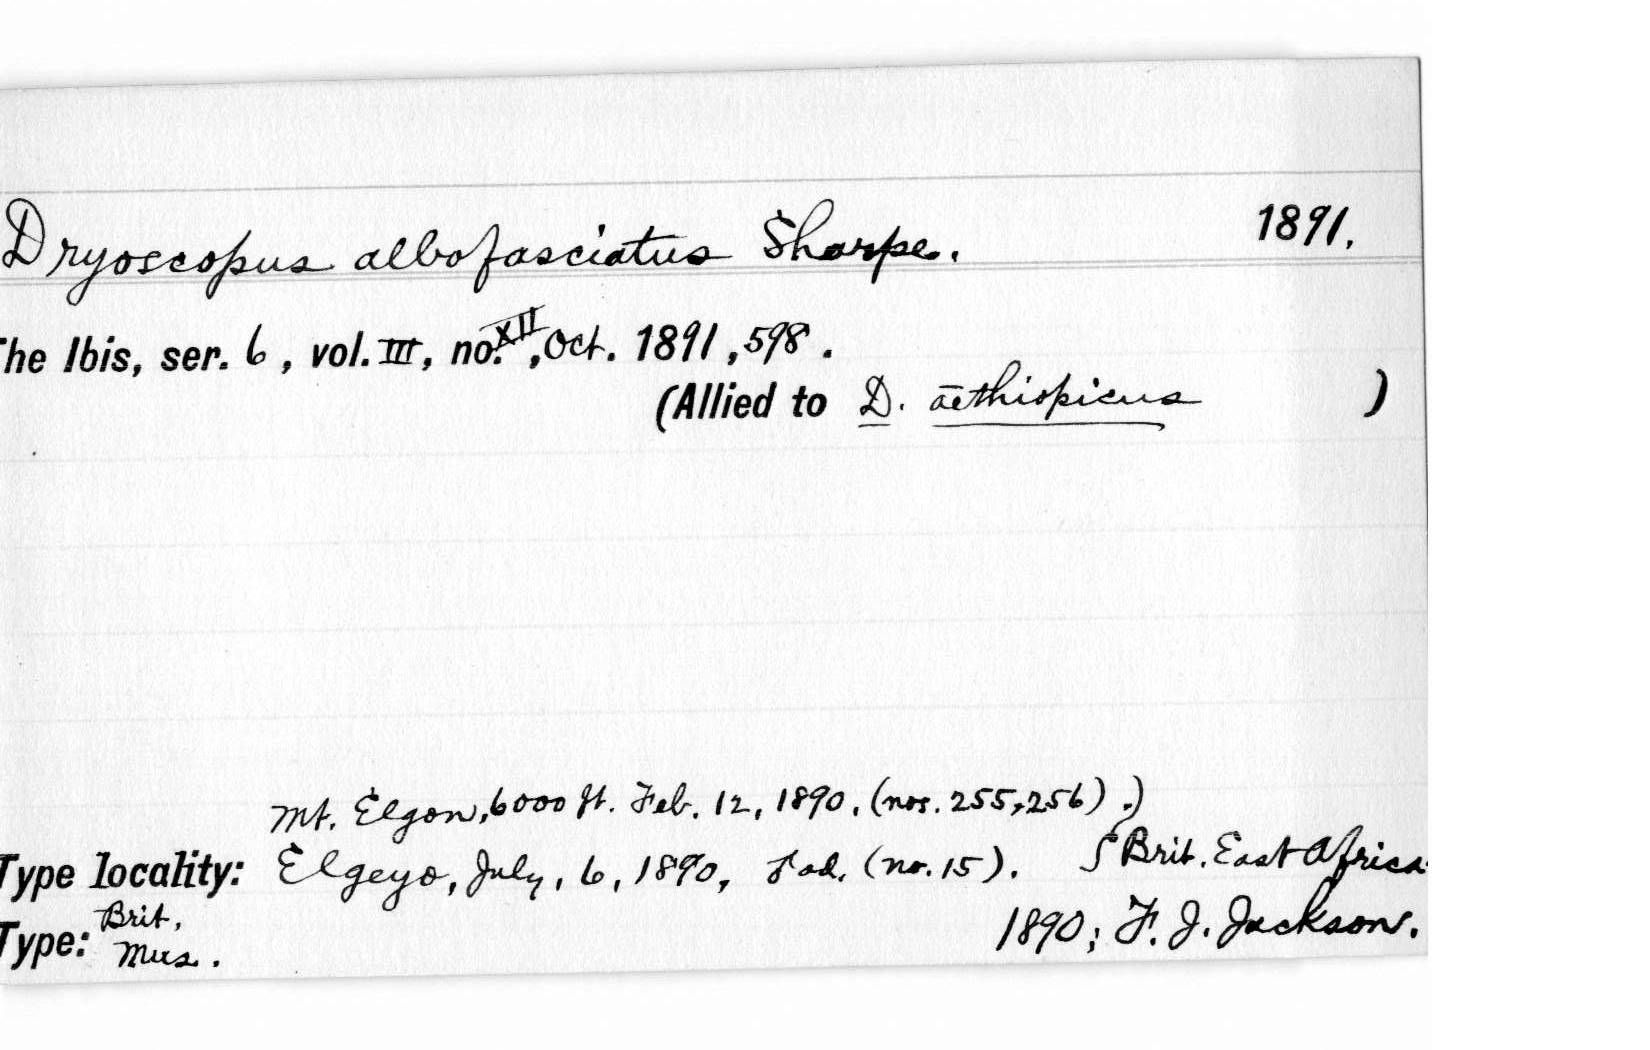 Dryoscopus albofasciatus Sharpe. 1891.
The Ibis, ser. 6, vol. III, no. XII, Oct. 1891, 598.
(Allied to D. æthiopicus )
Mt. Elgon, 6000 ft. Feb. 12, 1890, (nos. 255, 256).)
Type locality: Elgeyo, July, 6, 1890, ad. (no. 15). Brit. East Africa
Type: Brit. Mus. 1890; F. J. Jackson.